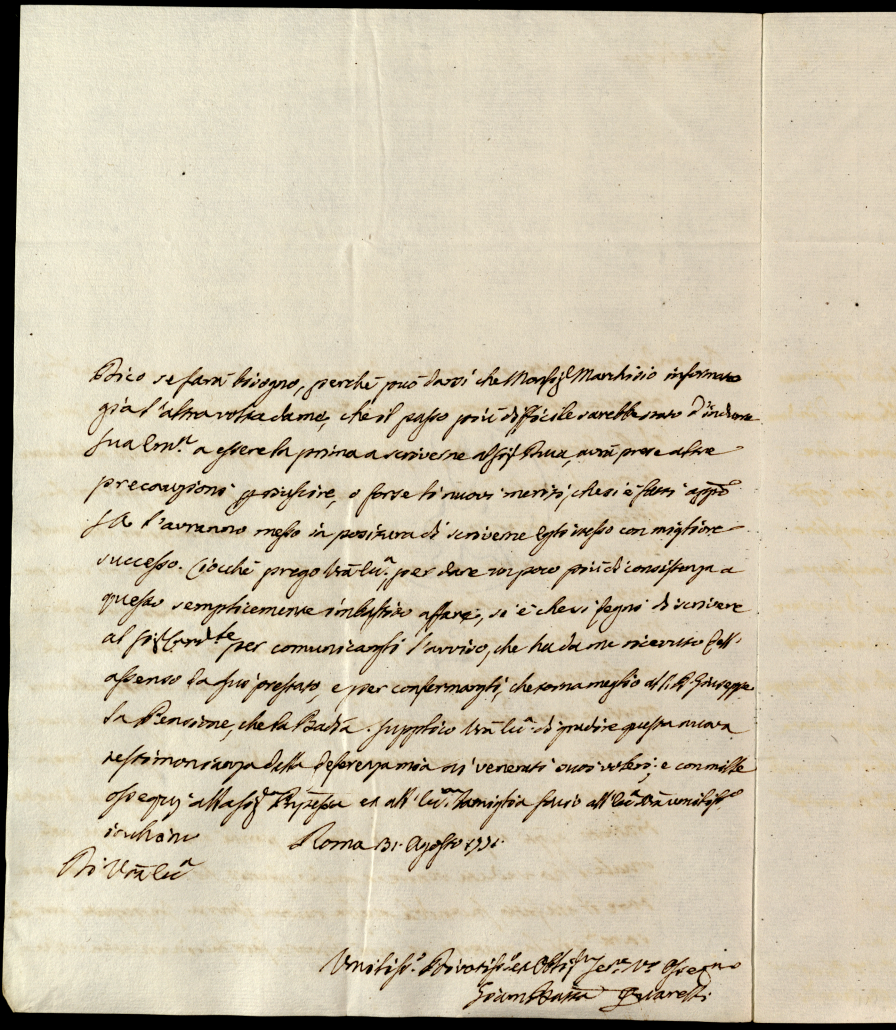 Dico se farà bisogno, perchè può darsi che Monsig.r Marchisio informato
già l'altra volta da me, che il passo più difficile sarebbe stato d'indurre
Sua Em.a a essere la prima a scriverne al Sig.r Duca, avrà prese altre
precauzioni p riuscire, o forse li nuovi meriti, che si è fatti app.o
l'avranno messo in positura di scriverne Egli stesso con migliore
successo. Ciocchè prego Vra Ecc.a, per dare un poco più di consistenza a
questo semplicemente imbastito affare, si è che si degni di scrivere
al Sig.r Card.le per comunicargli l'avviso, che ha da me ricevuto dell'
assenso da lui prestato, e per confermargli, che torna meglio al P. Giuseppe
la Pensione, che la Badia. Supplico Vra Ecc.a di gradire questa nuova
testimonianza della deferenza mia ai venerati suoi voleri; e con mille
ossequj alla Sig.ra Pnpessa ed all' Ecc.ma Famiglia faccio all' Ecc.a Vra umiliss.o
inchino
Roma 31. Agosto
Di Vra Ecc.a
Umiliss.o Divotiss.o ed Obblig.mo Ser.e Vo Ossequio
Giambatta